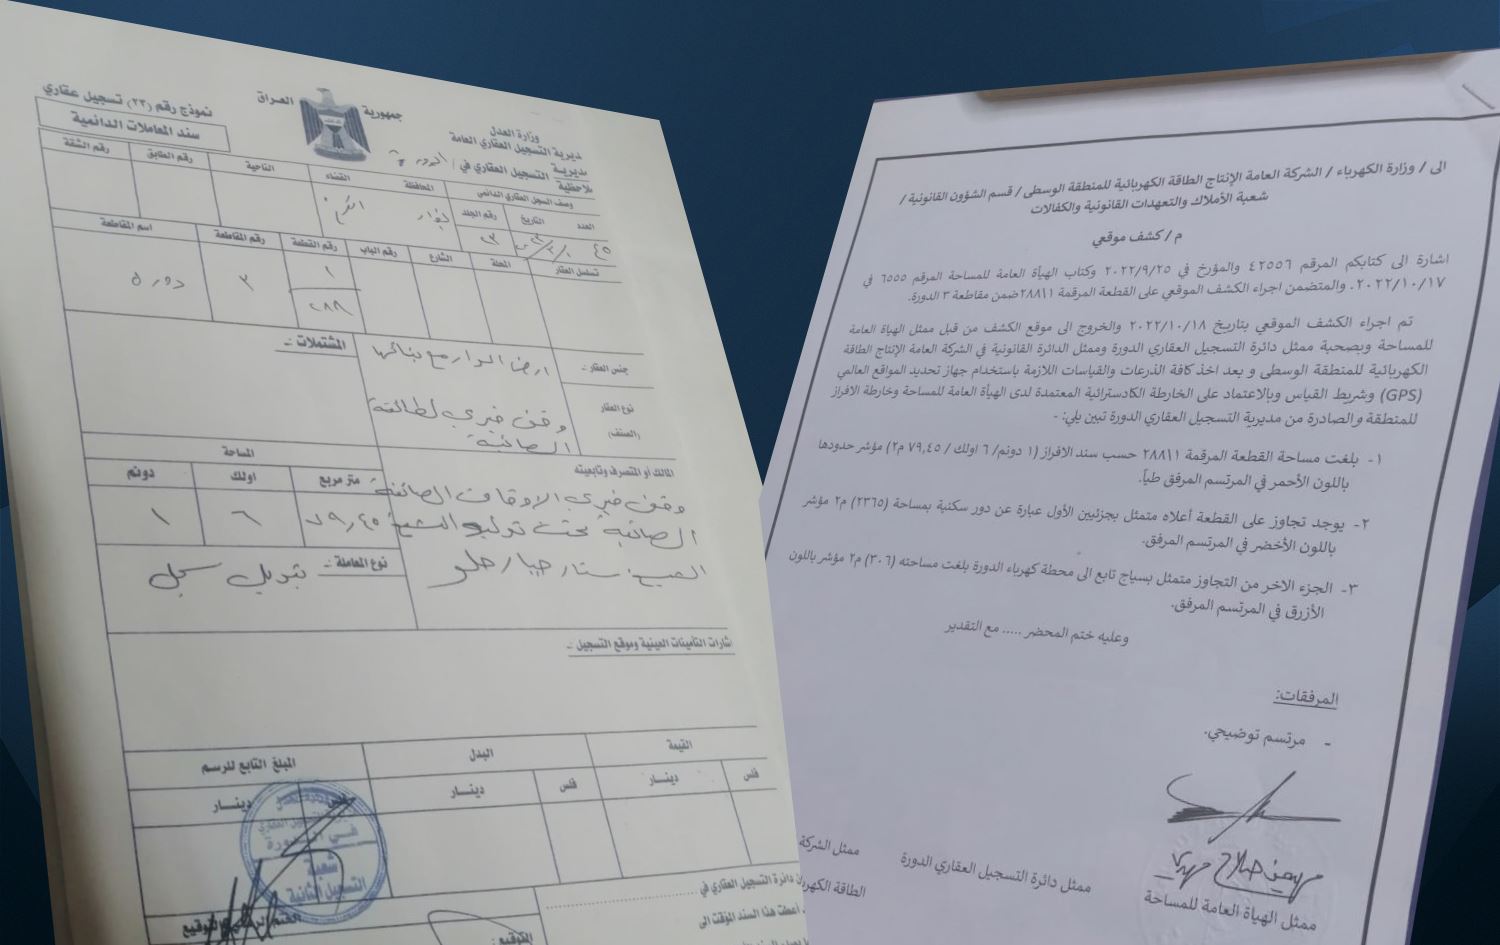 جمهورية العراق
وزارة العدل
مديرية التسجيل العقاري العامة
مديرية التسجيل العقاري في / الدورة
ملاحظية
نموذج رقم (٢٣) تسجيل عقاري
سند المعاملات الدائمية
وصف السجل العقاري الدائمي
المحافظة القضاء الناحية رقم الطابق رقم الشقة
العدد التاريخ رقم الجلد
بغداد الكرخ
٤٥ ٢٣
تسلسل العقار المحلة الشارع رقم الباب رقم القطعة رقم المقاطعة اسم المقاطعة
١ / ٢٨٨ ٣ دورة
جنس العقار :- ارض الدار مع بنائها
المشتملات :-
نوع العقار (الصنف) وقف خيري لطائفة
الصابئة
المالك أو المتصرف وتابعيته
وقف خيري الاوقاف الصابئة
الصابئة تحت تولية الشيخ
الشيخ ستار جبار حلو
المساحة
متر مربع اولك دونم
٧٩,٤٥ ٦ ١
نوع المعاملة :- تبديل سجل
اشارات التأمينات العينية وموقع التسجيل :-
القيمة البدل المبلغ التابع للرسم
فلس دينار فلس دينار فلس دينار
شعبة
التسجيل الثانية
دائرة التسجيل العقاري في
أعطت هذا السند المؤقت الى
التوقيع :
الى / وزارة الكهرباء / الشركة العامة الإنتاج الطاقة الكهربائية للمنطقة الوسطى / قسم الشؤون القانونية /
شعبة الأملاك والتعهدات القانونية والكفالات
م / كشف موقعي
اشارة الى كتابكم المرقم ٤٢٥٥٦ والمؤرخ في ٢٠٢٢/٩/٢٥ وكتاب الهيأة العامة للمساحة المرقم ٦٥٥٥ في
٢٠٢٢/١٠/١٧. والمتضمن اجراء الكشف الموقعي على القطعة المرقمة ٢٨٨\١ ضمن مقاطعة ٣ الدورة.
تم اجراء الكشف الموقعي بتاريخ ٢٠٢٢/١٠/١٨ والخروج الى موقع الكشف من قبل ممثل الهيأة العامة
للمساحة وبصحبة ممثل دائرة التسجيل العقاري الدورة وممثل الدائرة القانونية في الشركة العامة الإنتاج الطاقة
الكهربائية للمنطقة الوسطى و بعد اخذ كافة الذرعات والقياسات اللازمة باستخدام جهاز تحديد المواقع العالمي
(GPS) وبشريط القياس وبالاعتماد على الخارطة الكادسترائية المعتمدة لدى الهيأة العامة للمساحة وخارطة الافراز
للمنطقة والصادرة من مديرية التسجيل العقاري الدورة تبين يلي: -
١- بلغت مساحة القطعة المرقمة ٢٨٨\١ حسب سند الافراز (١ دونم/ ٦ اولك / ٧٩,٤٥ م٢) مؤشر حدودها
باللون الأحمر في المرتسم المرفق طياً.
٢- يوجد تجاوز على القطعة أعلاه متمثل بجزئيين الأول عبارة عن دور سكنية بمساحة (٢٣٦٥) م٢ مؤشر
باللون الأخضر في المرتسم المرفق.
٣- الجزء الاخر من التجاوز متمثل بسياج تابع الى محطة كهرباء الدورة بلغت مساحته (٣٠٦) م٢ مؤشر باللون
الأزرق في المرتسم المرفق.
وعليه ختم المحضر ..... مع التقدير
المرفقات:
- مرتسم توضيحي.
صلاح مهدي
ممثل الهيأة العامة للمساحة
ممثل دائرة التسجيل العقاري الدورة
ممثل الشركة
الطاقة